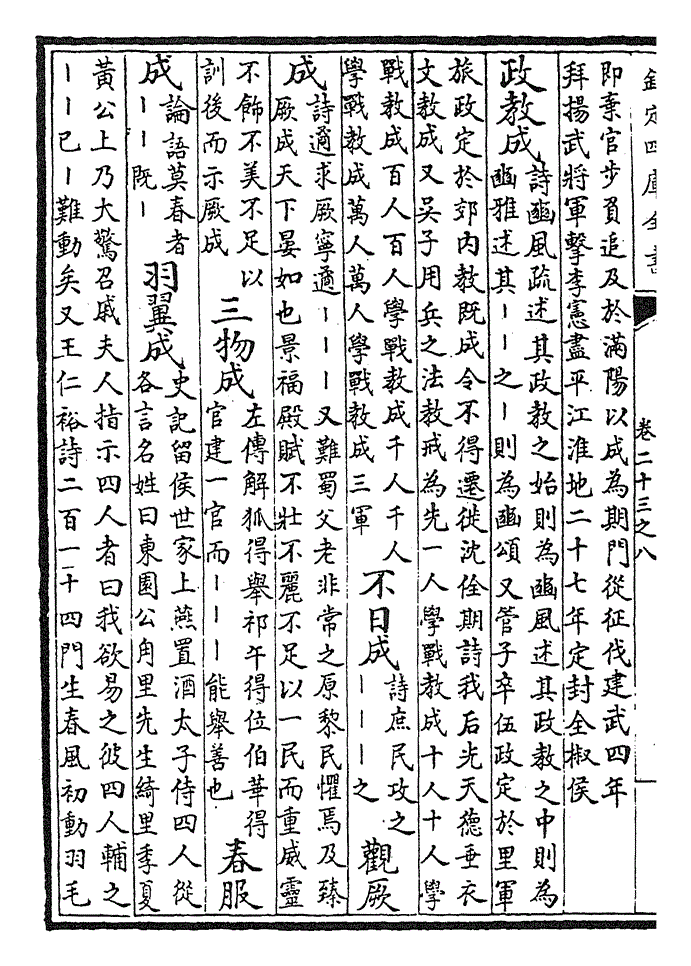 欽定四庫全書
卷二十三之八
即棄官步負追及於滿陽以成為期門從征伐建武四年
拜揚武將軍擊李憲盡平江淮地二十七年定封全椒侯
政教成
詩豳風疏述其政教之始則為豳風述其政教之中則為
豳雅述其丨丨之丨則為豳頌又管子卒伍政定於里軍
旅政定於郊内教既成令不得遷徙沈佺期詩我后光天德垂衣
文教成又吳子用兵之法教戒為先一人學戰教成十人十人學
戰教成百人百人學戰教成千人千人
學戰教成萬人萬人學戰教成三軍
不日成
詩庶民攻之
丨丨丨之
觀厥
成
詩遹求厥寧遹丨丨丨又難蜀父老非常之原黎民懼焉及臻
厥成天下晏如也景福殿賦不壯不麗不足以一民而重威靈
不飾不美不足以
訓後而示厥成
三物成
左傳解狐得舉祁午得位伯華得
官建一官而丨丨丨能舉善也
春服
成
論語莫春者
丨丨既丨
羽翼成
史記留侯世家上燕置酒太子侍四人從
各言名姓曰東園公角里先生綺里季夏
黃公上乃大驚召戚夫人指示四人者曰我欲易之彼四人輔之
丨丨已丨難動矣又王仁裕詩二百一十四門生春風初動羽毛